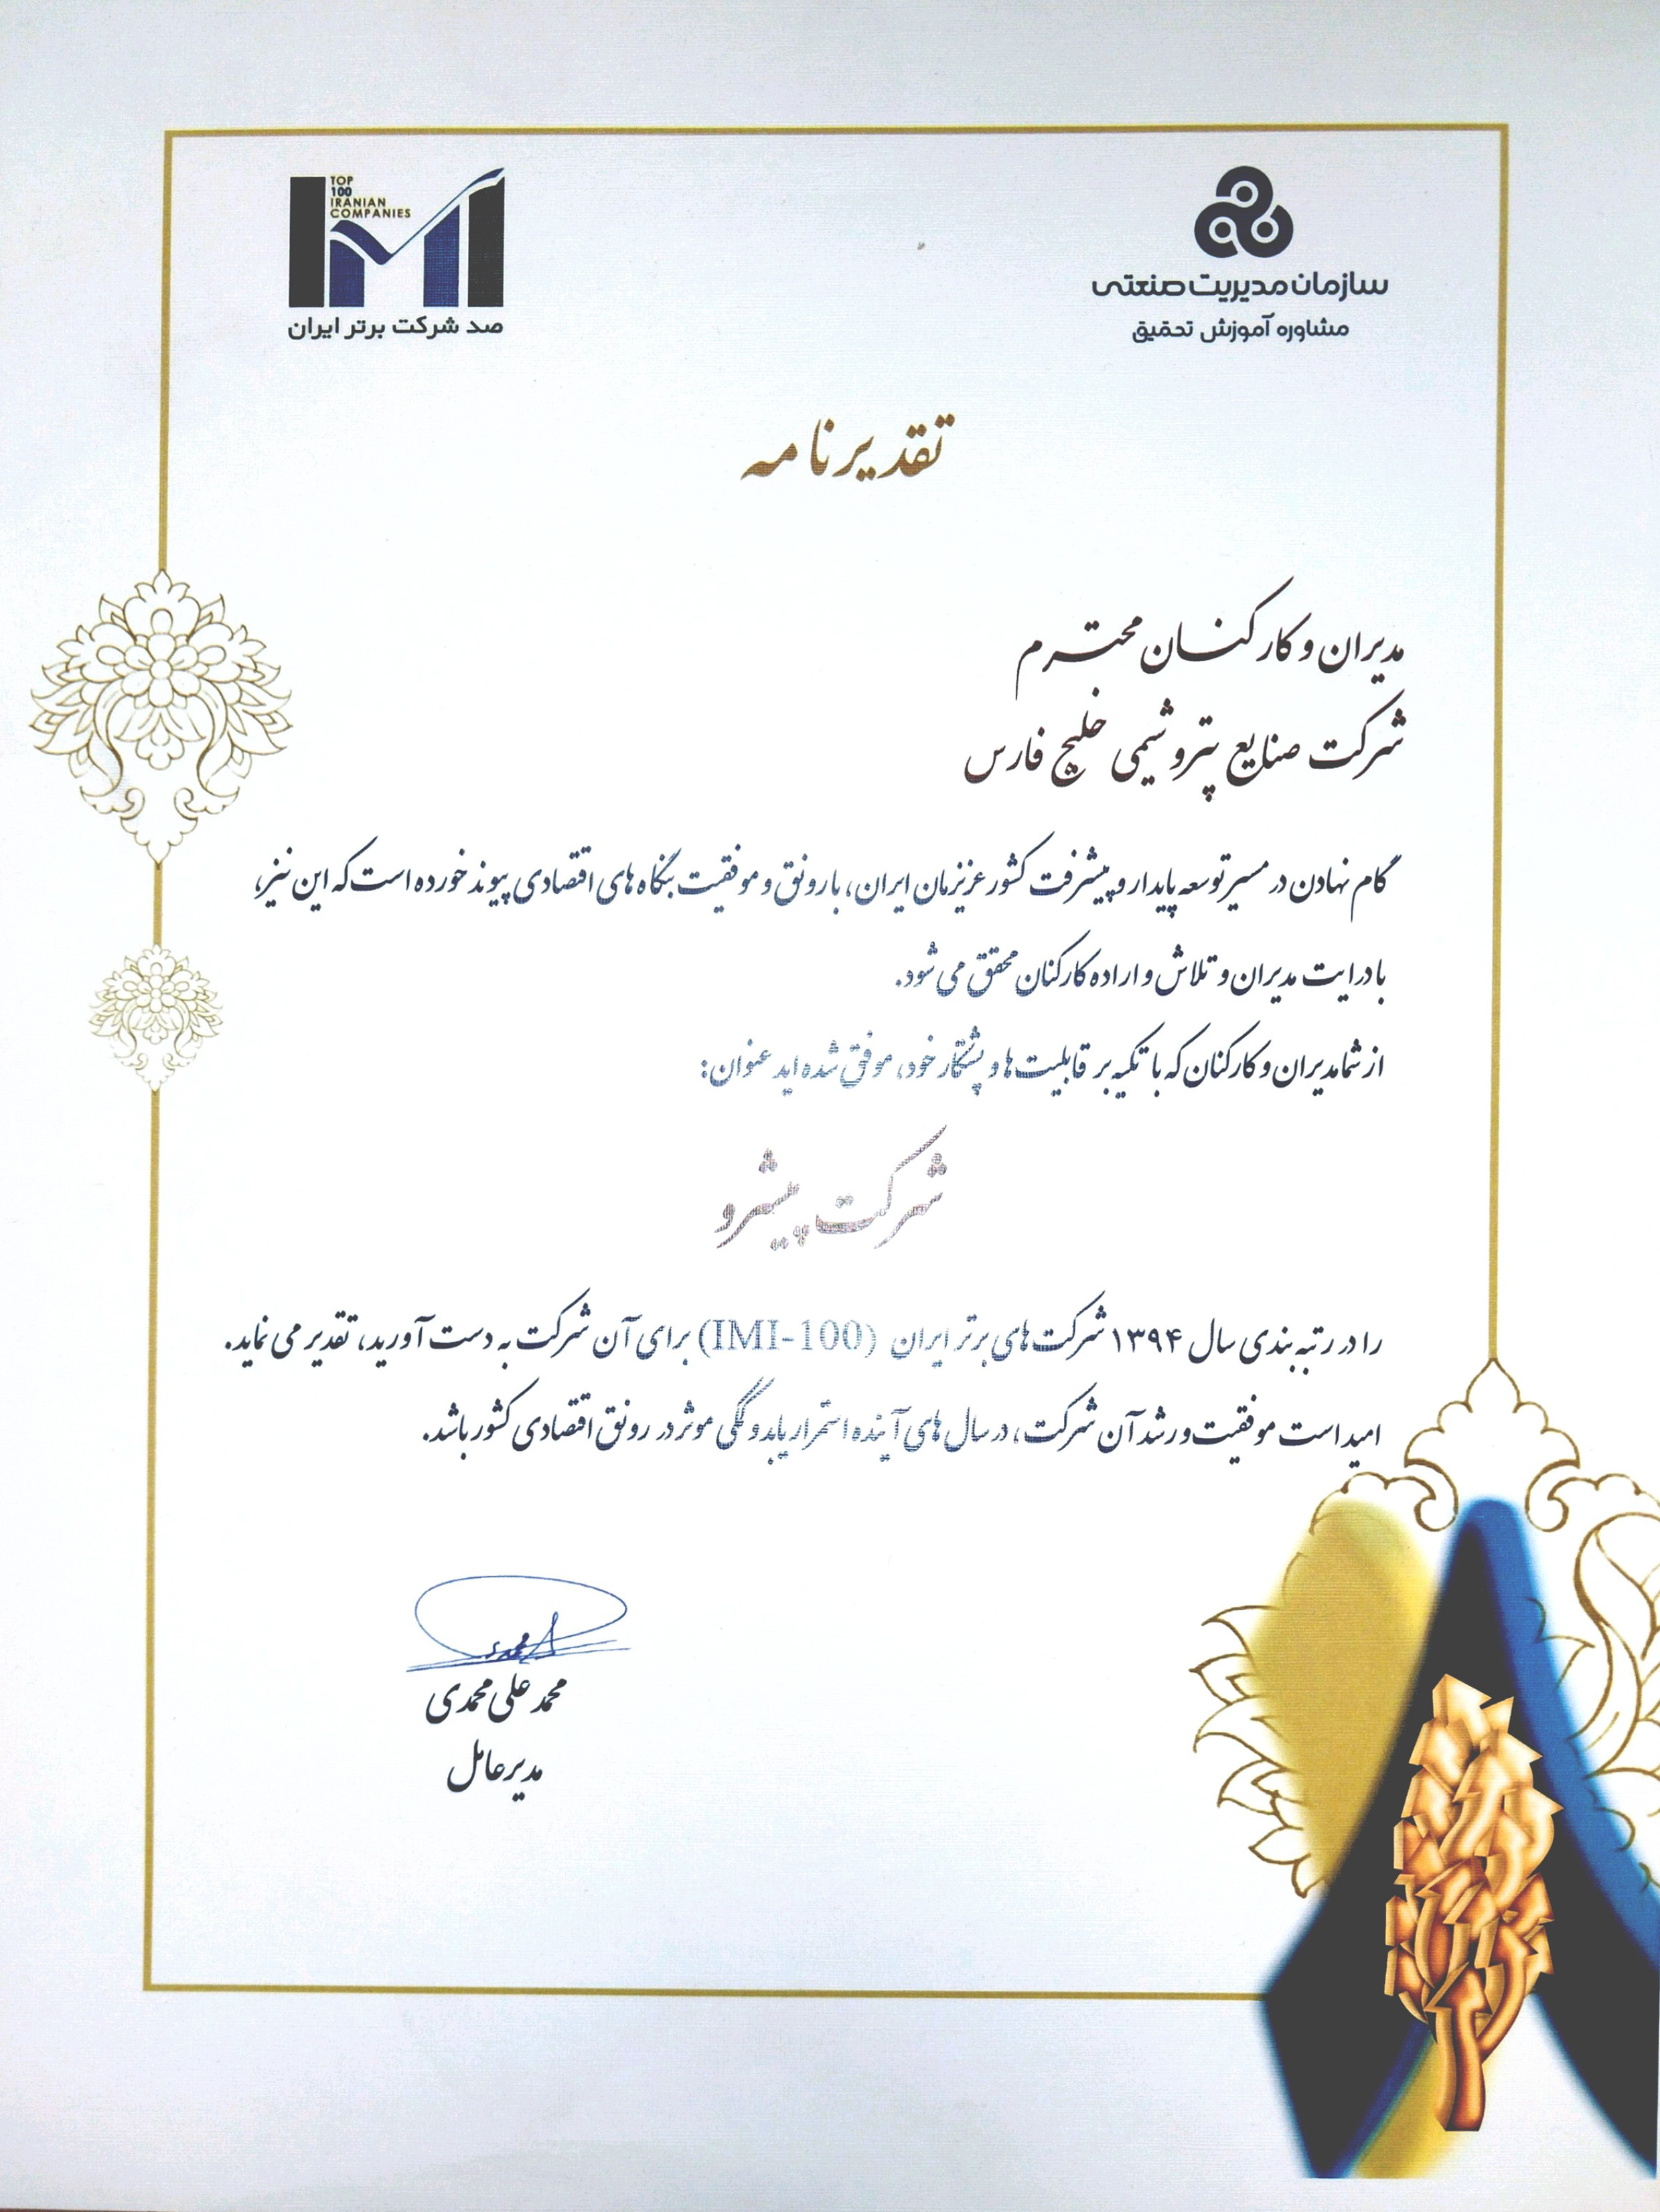 TOP
100
IRANIAN
COMPANIES
IMI
صد شرکت برتر ایران
سازمان مدیریت صنعتی
مشاوره آموزش تحقیق
تقدیرنامه
مدیران و کارکنان محترم
شرکت صنایع پتروشیمی خلیج فارس
گام نهادن در مسیر توسعه پایدار و پیشرفت کشور عزیزمان ایران، با رونق و موفقیت بنگاه های اقتصادی پیوند خورده است که این نیز،
با درایت مدیران و تلاش و اراده کارکنان محقق می شود.
از شما مدیران و کارکنان که با تکیه بر قابلیت ها و پشتکار خود، موفق شده اید عنوان:
شرکت پیشرو
را در رتبه بندی سال ۱۳۹۴ شرکت های برتر ایران (IMI-100) برای آن شرکت به دست آورید، تقدیر می نماید.
امید است موفقیت و رشد آن شرکت، در سال های آینده استمرار یابد و گامی موثر در رونق اقتصادی کشور باشد.
محمد علی محمدی
مدیرعامل